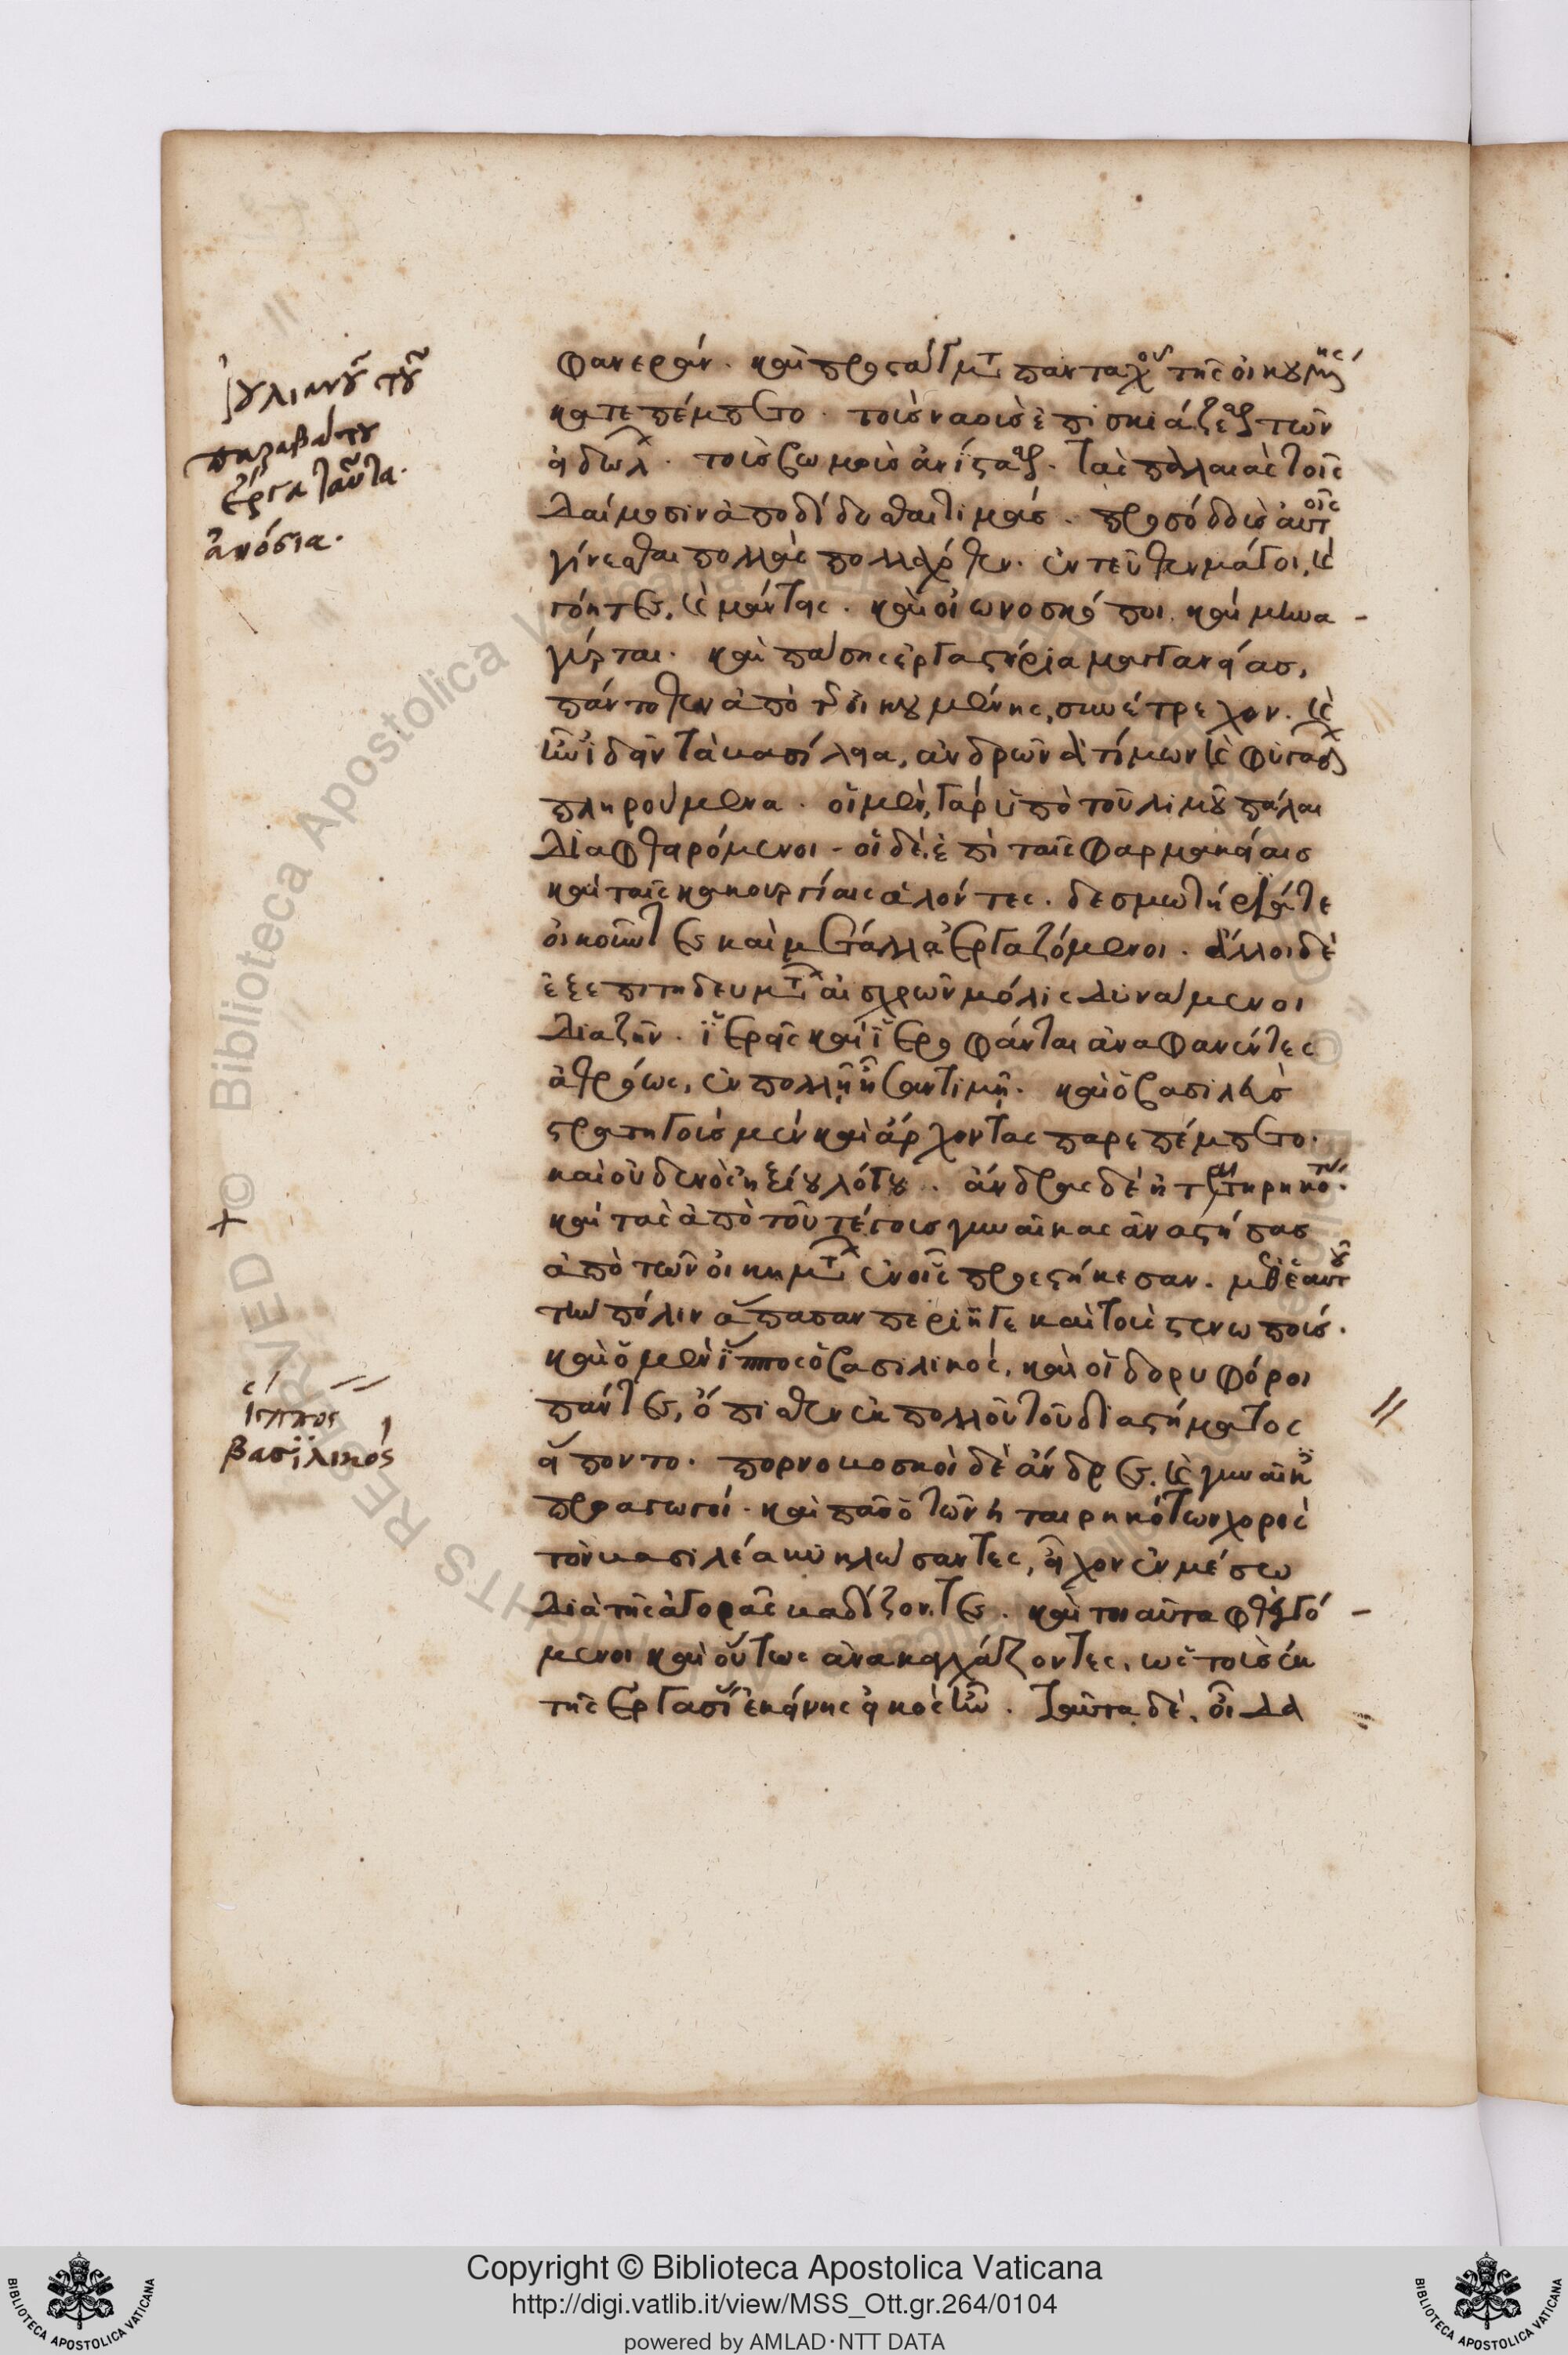 Ἰουλιανοῦ τοῦ
παραβάτου
ἔργα ταῦτα
ἀνόσια.
φανεράν. καὶ προστάγματα πανταχοῦ τῆς οἰκουμένης
κατεπέμπετο. τοὺς ναοὺς ἐπισκιάζειν τῶν
εἰδώλων. τοὺς βωμοὺς ἀνίστασθαι. τὰς παλαιὰς τοῖς
δαίμοσιν ἀποδίδοσθαι τιμάς. προσόδους αὐτοῖς
γίνεσθαι πολλὰς πολλαχόθεν. ἐντεῦθεν μάγοι, καὶ
γόητες, καὶ μάντεις. καὶ οἰωνοσκόποι. καὶ μηνα-
γύρται. καὶ πάσης ἐργαστήρια μαγγανείας,
πάντοθεν ἀπὸ τῆς οἰκουμένης, συνέτρεχον. καὶ
ἦν ἰδεῖν τὰ βασίλεια, ἀνδρῶν ἀτίμων καὶ φυγάδων
πληρούμενα. οἱ μὲν γὰρ ὑπὸ τοῦ λιμοῦ πάλαι
διαφθειρόμενοι. οἱ δὲ, ἐπὶ ταῖς φαρμακείαις
καὶ ταῖς κακουργίαις ἁλόντες. δεσμωτήριά τε
οἰκοῦντες καὶ μέταλλα ἐργαζόμενοι. ἄλλοι δὲ
ἐξ ἐπιτηδευμάτων αἰσχρῶν μόλις δυνάμενοι
διαζῆν. ἱερεῖς καὶ ἱεροφάνται ἀναφανέντες
ἀθρόως, ἐν πολλῇ ἦσαν τιμῇ. καὶ ὁ βασιλεὺς
στρατηγοὺς μὲν καὶ ἄρχοντας παρεπέμπετο.
καὶ οὐδενὸς ἠξίου λόγου. ἄνδρας δὲ ἡταιρηκότας.
καὶ τὰς ἀπὸ τοῦ τέγους γυναῖκας ἀναστήσας
ἀπὸ τῶν οἰκημάτων ἐν οἷς προεστήκεσαν. μεθ' ἑαυτοῦ
τὴν πόλιν ἅπασαν περιῆγε καὶ τοὺς στενωπούς.
καὶ ὁ μὲν ἵππος ὁ βασιλικός, καὶ οἱ δορυφόροι
πάντες, ὄπισθεν ἐκ πολλοῦ τοῦ διαστήματος
εἵποντο. πορνοβοσκοὶ δὲ ἄνδρες, καὶ γυναῖκες
προαγωγοί. καὶ πᾶς ὁ τῶν ἡταιρηκότων χορὸς
τὸν βασιλέα κυκλώσαντες, εἶχον ἐν μέσῳ
διὰ τῆς ἀγορᾶς βαδίζοντες. καὶ τοιαῦτα φθεγγό-
μενοι καὶ οὕτως ἀνακαγχάζοντες, ὡς τοὺς ἐκ
τῆς ἐργασίας ἐκείνης εἰκὸς ἦν. ταῦτα δὲ, οἶδα
ἵππος
βασιλικός
Copyright © Biblioteca Apostolica Vaticana
http://digi.vatlib.it/view/MSS_Ott.gr.264/0104
powered by AMLAD·NTT DATA